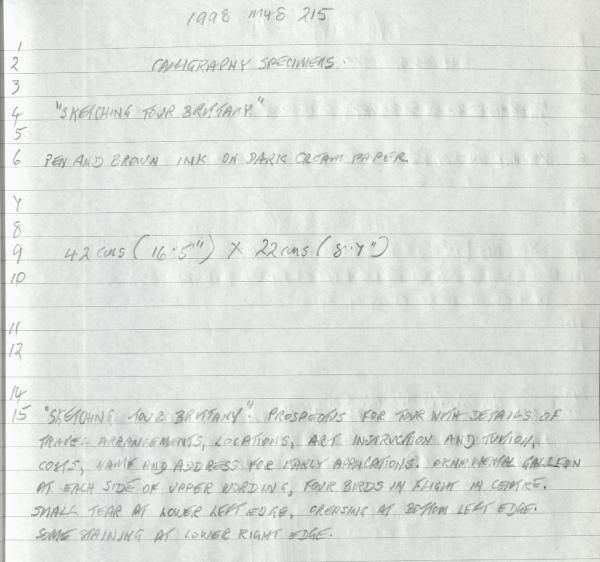 1998 MM8 215
1
2 CALLIGRAPHY SPECIMENS.
3
4 "SKETCHING TOUR BRITTANY"
5
6 PEN AND BROWN INK ON DARK CREAM PAPER
7
8
9 42 cms (16.5") X 22 cms (8.7")
10
11
12
14
15 "SKETCHING TOUR BRITTANY". PROSPECTUS FOR TOUR WITH DETAILS OF
TRAVEL ARRANGEMENTS, LOCATIONS, ART INSTRUCTION AND TUITION,
COSTS, NAME AND ADDRESS FOR EARLY APPLICATIONS. ORNAMENTAL GALLEON
AT EACH SIDE OF UPPER WORDING, FOUR BIRDS IN FLIGHT IN CENTRE.
SMALL TEAR AT LOWER LEFT EDGE, CREASING AT BOTTOM LEFT EDGE.
SOME STAINING AT LOWER RIGHT EDGE.